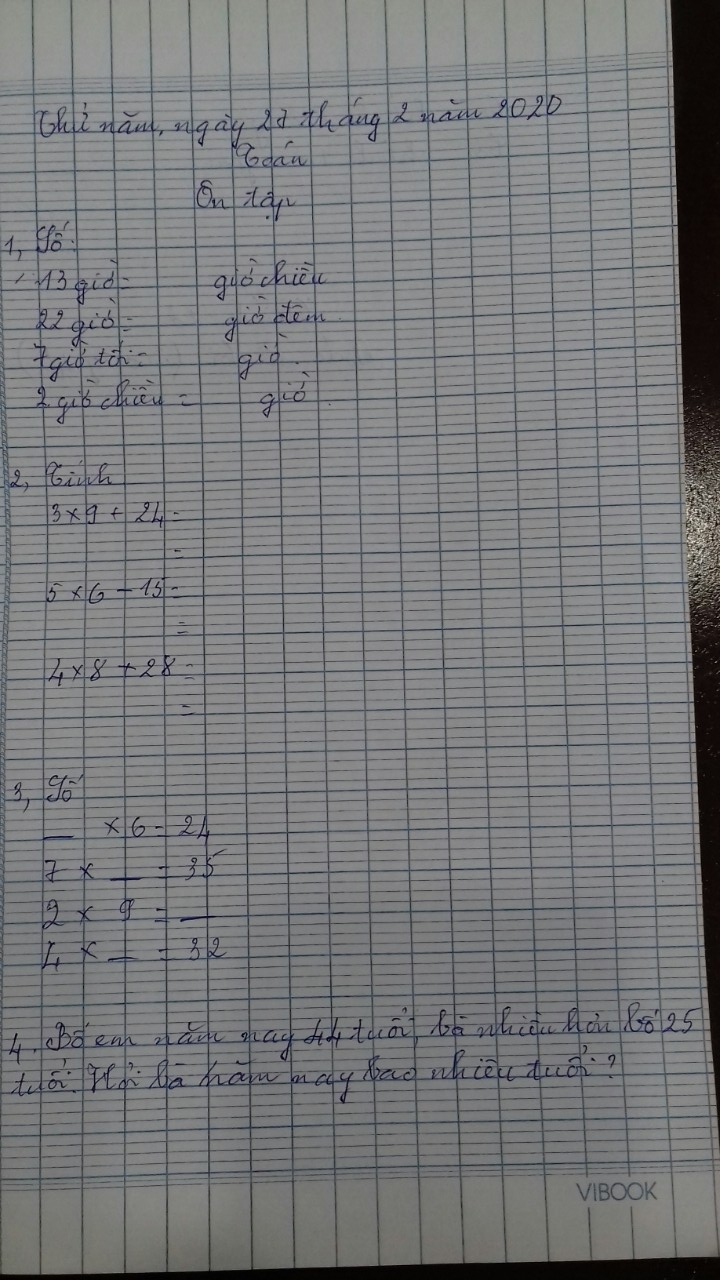 Thứ năm, ngày 27 tháng 2 năm 2020
Toán
Ôn tập
1, Số:
13 giờ = giờ chiều
22 giờ = giờ đêm.
7 giờ tối = giờ.
2 giờ chiều = giờ.
2, Tính
3 × 9 + 24 =
=
5 × 6 - 15 =
=
4 × 8 + 28 =
=
3, Số
__ × 6 = 24
7 × __ = 35
2 × 9 = __
4 × __ = 32
4. Bố em năm nay 44 tuổi, bà nhiều hơn bố 25
tuổi. Hỏi bà năm nay bao nhiêu tuổi?
VIBOOK